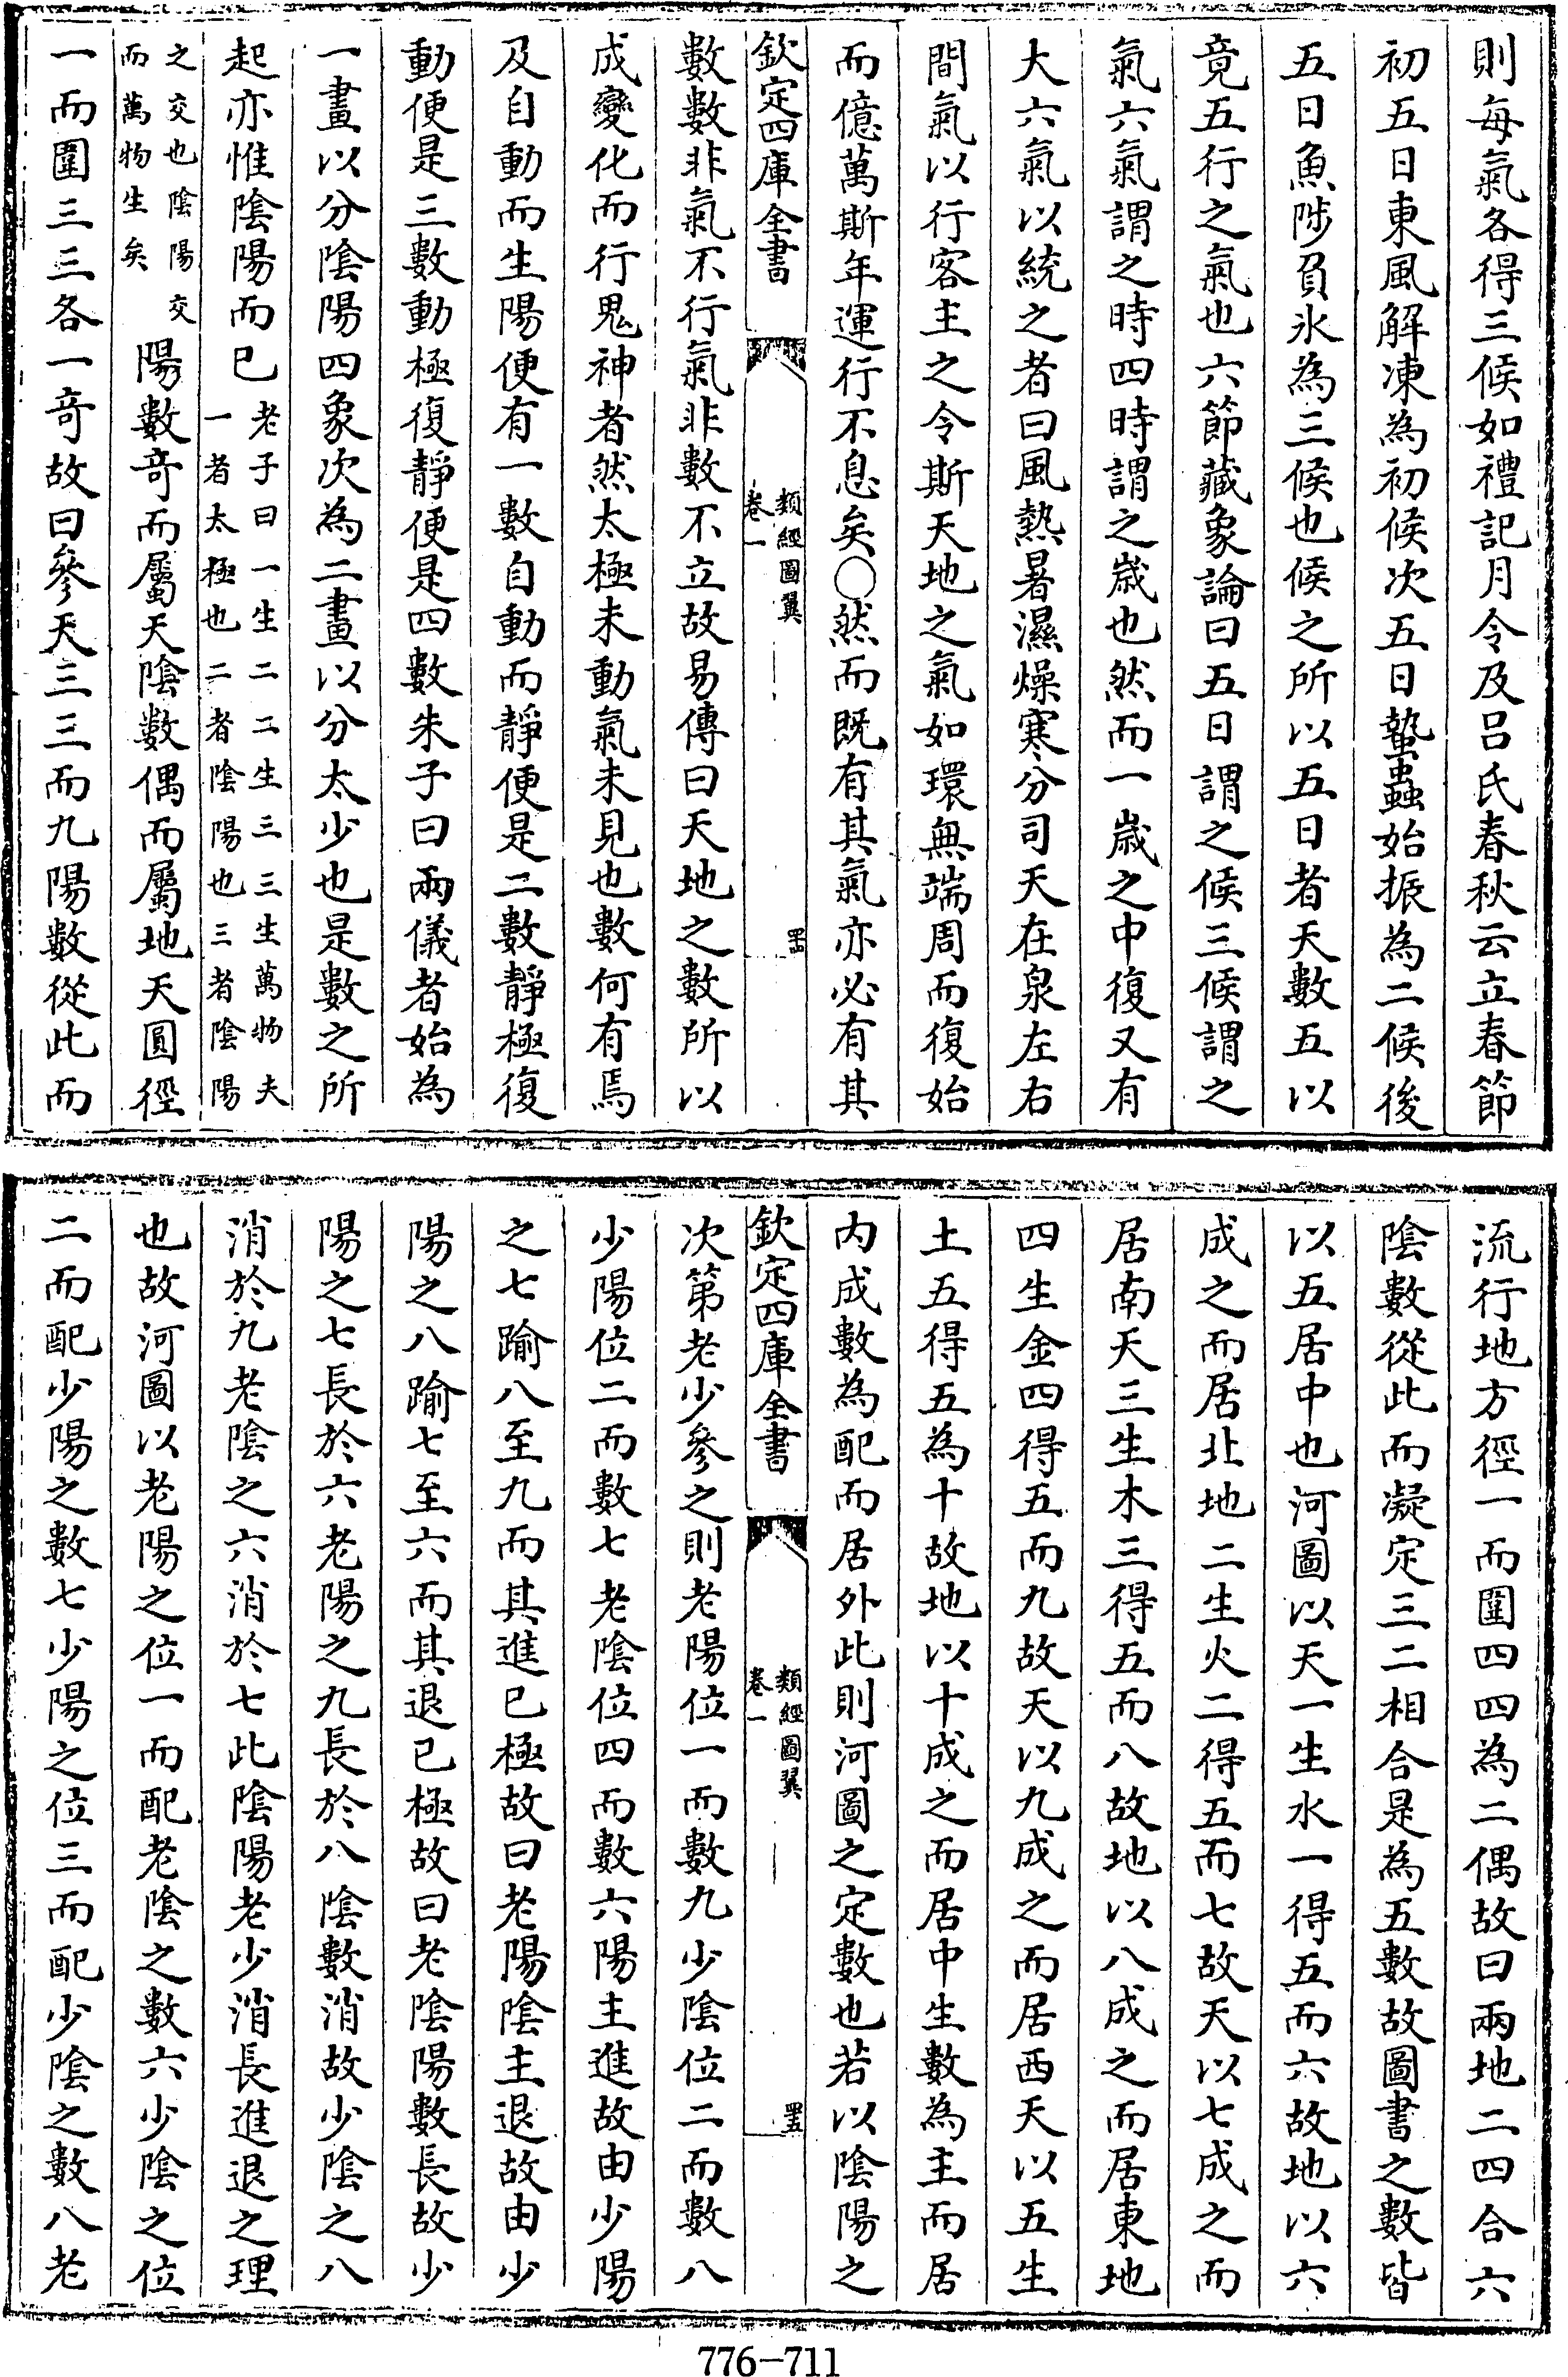 則每氣各得三候如禮記月令及呂氏春秋云立春節
初五日東風解凍為初候次五日蟄蟲始振為二候後
五日魚陟負氷為三候也候之所以五日者天數五以
竟五行之氣也六節藏象論曰五日謂之候三候謂之
氣六氣謂之時四時謂之歲也然而一歲之中復又有
大六氣以統之者曰風熱暑濕燥寒分司天在泉左右
間氣以行客主之令斯天地之氣如環無端周而復始
而億萬斯年運行不息矣○然而既有其氣亦必有其
欽定四庫全書
類經圖翼
卷一
四四
數數非氣不行氣非數不立故易傳曰天地之數所以
成變化而行鬼神者然太極未動氣未見也數何有焉
及自動而生陽便有一數自動而靜便是二數靜極復
動便是三數動極復靜便是四數朱子曰兩儀者始為
一畫以分陰陽四象次為二畫以分太少也是數之所
起亦惟陰陽而已
老子曰一生二二生三三生萬物夫
一者太極也二者陰陽也三者陰陽
之交也陰陽交
而萬物生矣
陽數奇而屬天陰數偶而屬地天圓徑
一而圍三三各一奇故曰參天三三而九陽數從此而
流行地方徑一而圍四四為二偶故曰兩地二四合六
陰數從此而凝定三二相合是為五數故圖書之數皆
以五居中也河圖以天一生水一得五而六故地以六
成之而居北地二生火二得五而七故天以七成之而
居南天三生木三得五而八故地以八成之而居東地
四生金四得五而九故天以九成之而居西天以五生
土五得五為十故地以十成之而居中生數為主而居
内成數為配而居外此則河圖之定數也若以陰陽之
欽定四庫全書
類經圖翼
卷一
四五
次第老少參之則老陽位一而數九少陰位二而數八
少陽位二而數七老陰位四而數六陽主進故由少陽
之七踰八至九而其進已極故曰老陽陰主退故由少
陽之八踰七至六而其退已極故曰老陰陽數長故少
陽之七長於六老陽之九長於八陰數消故少陰之八
消於九老陰之六消於七此陰陽老少消長進退之理
也故河圖以老陽之位一而配老陰之數六少陰之位
二而配少陽之數七少陽之位三而配少陰之數八老
776-711